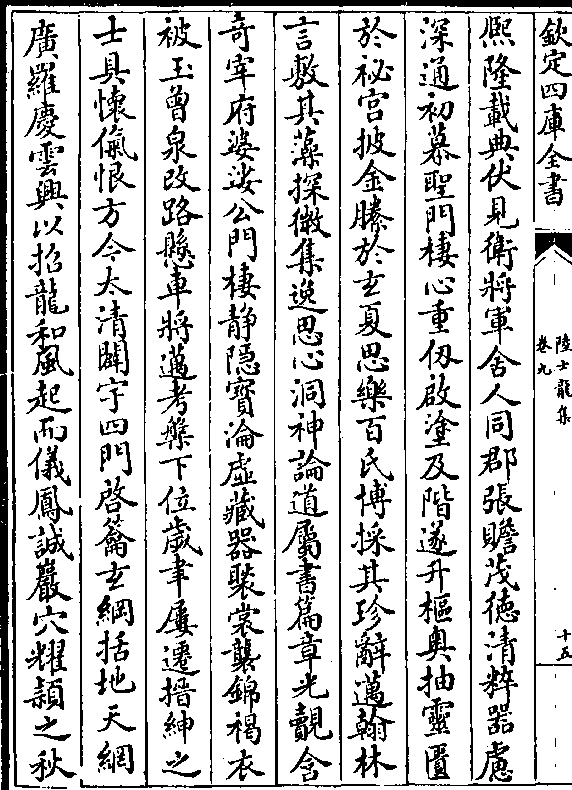 欽定四庫全書
陸士龍集
卷九
十五
熈隆載典伏見衛將軍舍人同郡張贍茂徳清粹器慮
深通初慕聖門棲心重仭啟塗及階遂升樞奥抽靈匱
於祕宫披金縢於玄夏思樂百氏博採其珍辭邁翰林
言敷其藻探微集逸思心洞神論道屬書篇章光覿含
竒宰府婆娑公門棲静隠寳淪虚藏器褧裳襲錦褐衣
被玉曽泉改路懸車將邁考槃下位歲聿屢遷搢紳之
士具懐愾恨方今太清闢宇四門啓籥玄綱括地天網
廣羅慶雲興以招龍和風起而儀鳳誠巖穴耀頴之秋